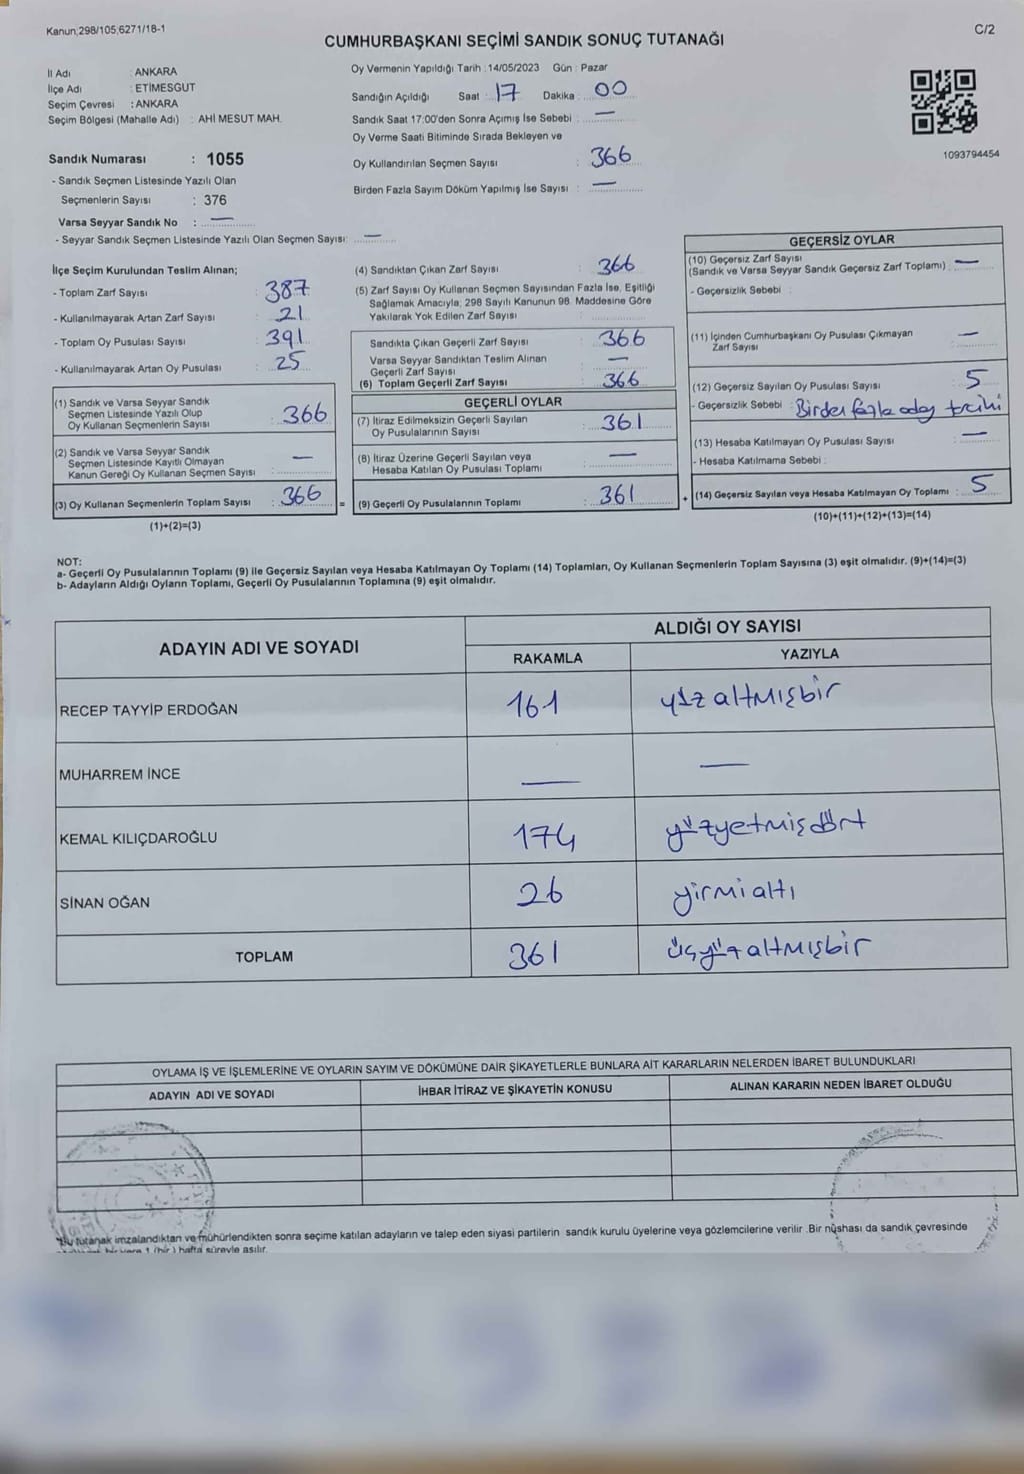 Kanun;298/105;6271/18-1
C/2
CUMHURBAŞKANI SEÇİMİ SANDIK SONUÇ TUTANAĞI
İl Adı : ANKARA
İlçe Adı : ETİMESGUT
Seçim Çevresi : ANKARA
Seçim Bölgesi (Mahalle Adı) : AHİ MESUT MAH.
Sandık Numarası : 1055
- Sandık Seçmen Listesinde Yazılı Olan
Seçmenlerin Sayısı : 376
Varsa Seyyar Sandık No : —
- Seyyar Sandık Seçmen Listesinde Yazılı Olan Seçmen Sayısı: —
Oy Vermenin Yapıldığı Tarih : 14/05/2023 Gün : Pazar
Sandığın Açıldığı Saat : 17 Dakika : 00
Sandık Saat 17:00'den Sonra Açımış İse Sebebi : —
Oy Verme Saati Bitiminde Sırada Bekleyen ve
Oy Kullandırılan Seçmen Sayısı : 366
Birden Fazla Sayım Döküm Yapılmış İse Sayısı : —
1093794454
İlçe Seçim Kurulundan Teslim Alınan;
- Toplam Zarf Sayısı : 387
- Kullanılmayarak Artan Zarf Sayısı : 21
- Toplam Oy Pusulası Sayısı : 391
- Kullanılmayarak Artan Oy Pusulası : 25
(1) Sandık ve Varsa Seyyar Sandık
Seçmen Listesinde Yazılı Olup
Oy Kullanan Seçmenlerin Sayısı : 366
(2) Sandık ve Varsa Seyyar Sandık
Seçmen Listesinde Kayıtlı Olmayan
Kanun Gereği Oy Kullanan Seçmen Sayısı : —
(3) Oy Kullanan Seçmenlerin Toplam Sayısı : 366 =
(1)+(2)=(3)
(4) Sandıktan Çıkan Zarf Sayısı : 366
(5) Zarf Sayısı Oy Kullanan Seçmen Sayısından Fazla İse, Eşitliği
Sağlamak Amacıyla, 298 Sayılı Kanunun 98. Maddesine Göre
Yakılarak Yok Edilen Zarf Sayısı :
Sandıkta Çıkan Geçerli Zarf Sayısı : 366
Varsa Seyyar Sandıktan Teslim Alınan
Geçerli Zarf Sayısı : —
(6) Toplam Geçerli Zarf Sayısı : 366
GEÇERLİ OYLAR
(7) İtiraz Edilmeksizin Geçerli Sayılan
Oy Pusulalarının Sayısı : 361
(8) İtiraz Üzerine Geçerli Sayılan veya
Hesaba Katılan Oy Pusulası Toplamı : —
(9) Geçerli Oy Pusulalarının Toplamı : 361 +
GEÇERSİZ OYLAR
(10) Geçersiz Zarf Sayısı
(Sandık ve Varsa Seyyar Sandık Geçersiz Zarf Toplamı) : —
- Geçersizlik Sebebi :
(11) İçinden Cumhurbaşkanı Oy Pusulası Çıkmayan
Zarf Sayısı : —
(12) Geçersiz Sayılan Oy Pusulası Sayısı : 5
- Geçersizlik Sebebi : Birden fazla aday tercihi
(13) Hesaba Katılmayan Oy Pusulası Sayısı : —
- Hesaba Katılmama Sebebi :
(14) Geçersiz Sayılan veya Hesaba Katılmayan Oy Toplamı : 5
(10)+(11)+(12)+(13)=(14)
NOT:
a- Geçerli Oy Pusulalarının Toplamı (9) ile Geçersiz Sayılan veya Hesaba Katılmayan Oy Toplamı (14) Toplamları, Oy Kullanan Seçmenlerin Toplam Sayısına (3) eşit olmalıdır. (9)+(14)=(3)
b- Adayların Aldığı Oyların Toplamı, Geçerli Oy Pusulalarının Toplamına (9) eşit olmalıdır.
ADAYIN ADI VE SOYADI
ALDIĞI OY SAYISI
RAKAMLA YAZIYLA
RECEP TAYYİP ERDOĞAN 161 yüz altmışbir
MUHARREM İNCE — —
KEMAL KILIÇDAROĞLU 174 yüzyetmişdört
SİNAN OĞAN 26 yirmialtı
TOPLAM 361 üçyüzaltmışbir
OYLAMA İŞ VE İŞLEMLERİNE VE OYLARIN SAYIM VE DÖKÜMÜNE DAİR ŞİKAYETLERLE BUNLARA AİT KARARLARIN NELERDEN İBARET BULUNDUKLARI
ADAYIN ADI VE SOYADI İHBAR İTİRAZ VE ŞİKAYETİN KONUSU ALINAN KARARIN NEDEN İBARET OLDUĞU
*Bu tutanak imzalandıktan ve mühürlendikten sonra seçime katılan adayların ve talep eden siyasi partilerin sandık kurulu üyelerine veya gözlemcilerine verilir .Bir nüshası da sandık çevresinde
bir yere 1 (bir ) hafta süreyle asılır.